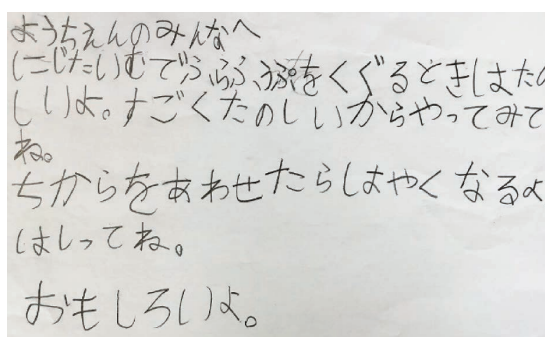 ようちえんのみんなへ
にじたいむでふらふうぷをくぐるときはたの
しいよ。すごくたのしいからやってみて
ね。
ちからをあわせたらはやくなるよ
はしってね。
おもしろいよ。